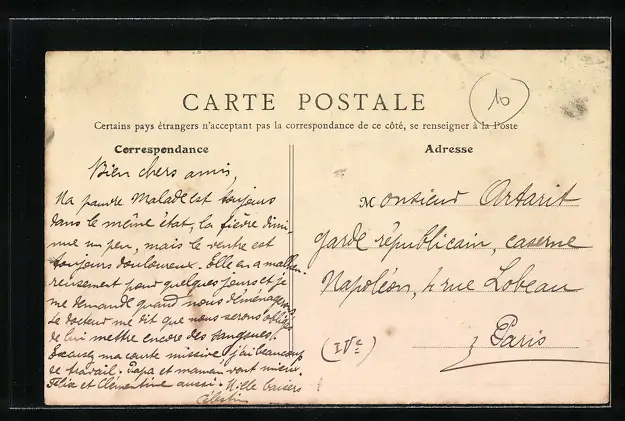 10
CARTE POSTALE
Certains pays étrangers n'acceptant pas la correspondance de ce côté, se renseigner à la Poste
Correspondance
Bien chers amis,
Ma pauvre Malade est toujours
dans le même état, la fièvre dimi
nue un peu, mais le ventre est
toujours douloureux. Elle en a malheu-
reusement pour quelques jours et je
me demande quand nous déménagerons
Le docteur me dit que nous serons obligés
de lui mettre encore des sangsues.
Excusez ma courte missive, j'ai beaucoup
de travail. Papa et maman vont mieux.
Félix et Clémentine aussi. Mille baisers
Célestin
Adresse
Monsieur Artarit
garde républicain, caserne
Napoléon, 4 rue Lobeau
Paris
(IVe)